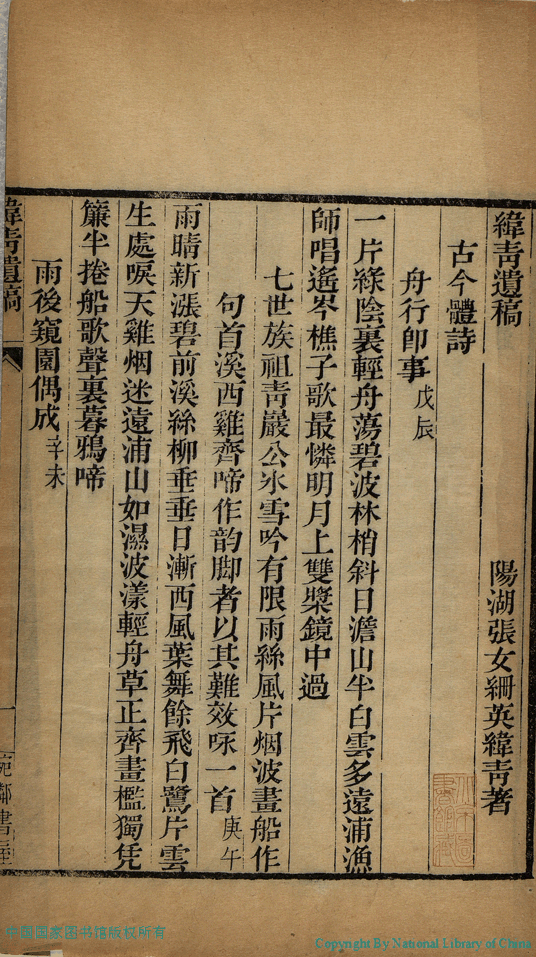 緯靑遺稿
陽湖張女䌌英緯靑著
古今體詩
舟行卽事 戊辰
一片綠陰裏輕舟蕩碧波林梢斜日澹山半白雲多遠浦漁
師唱遙岑樵子歌最憐明月上雙槳鏡中過
七世族祖靑巖公氷雪吟有限雨絲風片烟波畫船作
句首溪西雞齊啼作韵脚者以其難效咏一首 庚午
雨晴新漲碧前溪絲柳垂垂日漸西風葉舞餘飛白鷺片雲
生處唳天雞烟迷遠浦山如濕波漾輕舟草正齊畫檻獨凭
簾半捲船歌聲裏暮鴉啼
雨後窺園偶成 辛未
緯靑遺稿
一
宛鄰書屋
中国国家图书馆版权所有
Copyright By National Library of China